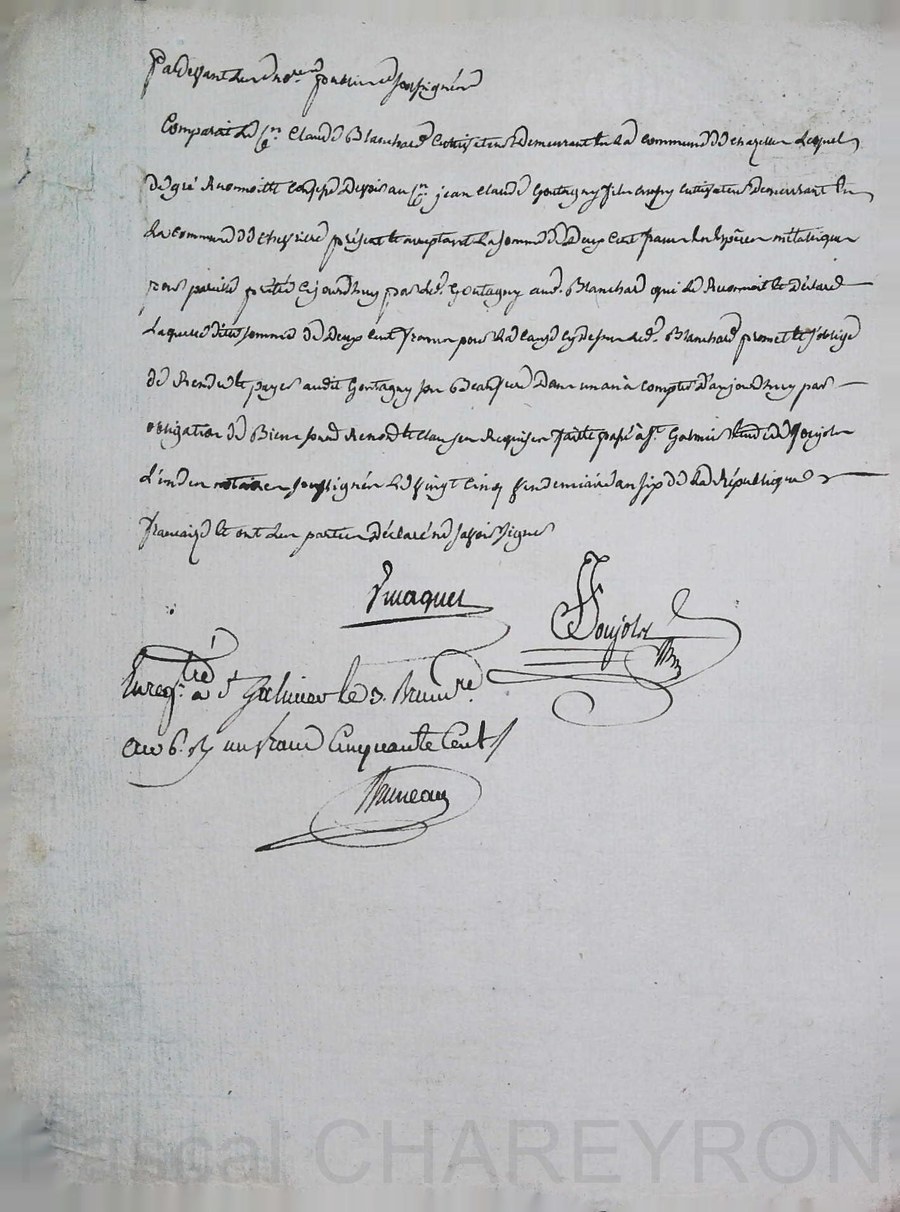 Pardevant les no.res publics soussignés
Comparait le C.en Claude Blanchard cultivateur demeurant en la commune de chazelles lequel
de gré reconnoitt confesse devoir au C.en jean Claude Gontagny fils cultivateur demeurant en
la commune de chevrieres présent et acceptant la somme de Deux cent francs en espèces métalique
pour pareille prêtée cejourd'huy par led. Gontagny aud. Blanchard qui le reconnoit et déclare
laquelle ditte somme de Deux cent francs pour la cause cydessus led. Blanchard promet et s'oblige
de rendre et payer audit Gontagny ou dans un an à compter d'aujourdhuy par
obligation de Biens soumis renond. et clauses requises faitte passé à S.t Galmier Poujolr
l'un des notaires soussignés le vingt cinq vendemiaire an six de la République
francaise et ont les parties déclaré ne savoir signer
Pmaquet
Poujolr
Enregtré a S.t Galmier le 3. Brum.re
an 6. R/ un franc Cinquante Cent/
Bruneau
Pascal CHAREYRON